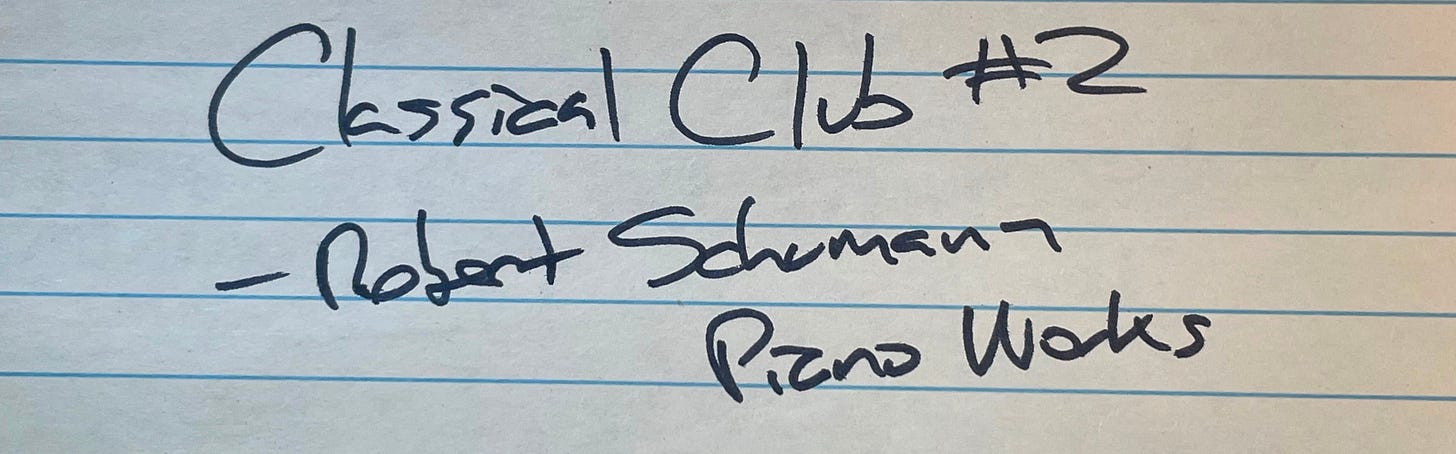 Classical Club #2
- Robert Schumann
Piano Works